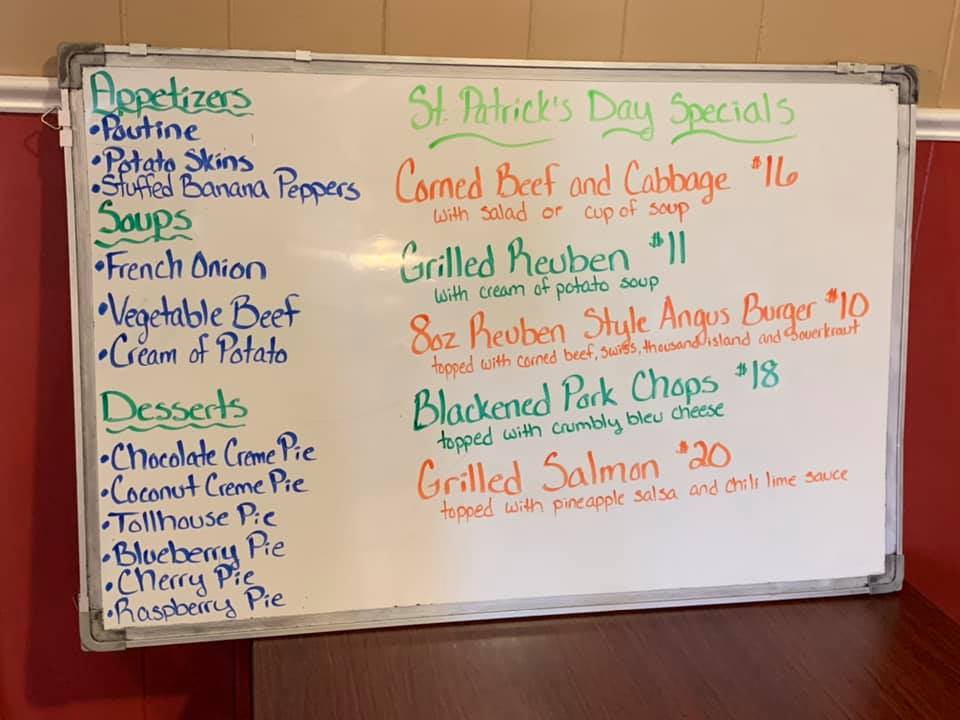 Appetizers
•Poutine
•Potato Skins
•Stuffed Banana Peppers
Soups
•French Onion
•Vegetable Beef
•Cream of Potato
Desserts
•Chocolate Creme Pie
•Coconut Creme Pie
•Tollhouse Pie
•Blueberry Pie
•Cherry Pie
•Raspberry Pie
St. Patrick's Day Specials
Corned Beef and Cabbage $16
with salad or cup of soup
Grilled Reuben $11
with cream of potato soup
8oz Reuben Style Angus Burger $10
topped with corned beef, swiss, thousand island and sauerkraut
Blackened Pork Chops $18
topped with crumbly bleu cheese
Grilled Salmon $20
topped with pineapple salsa and chili lime sauce